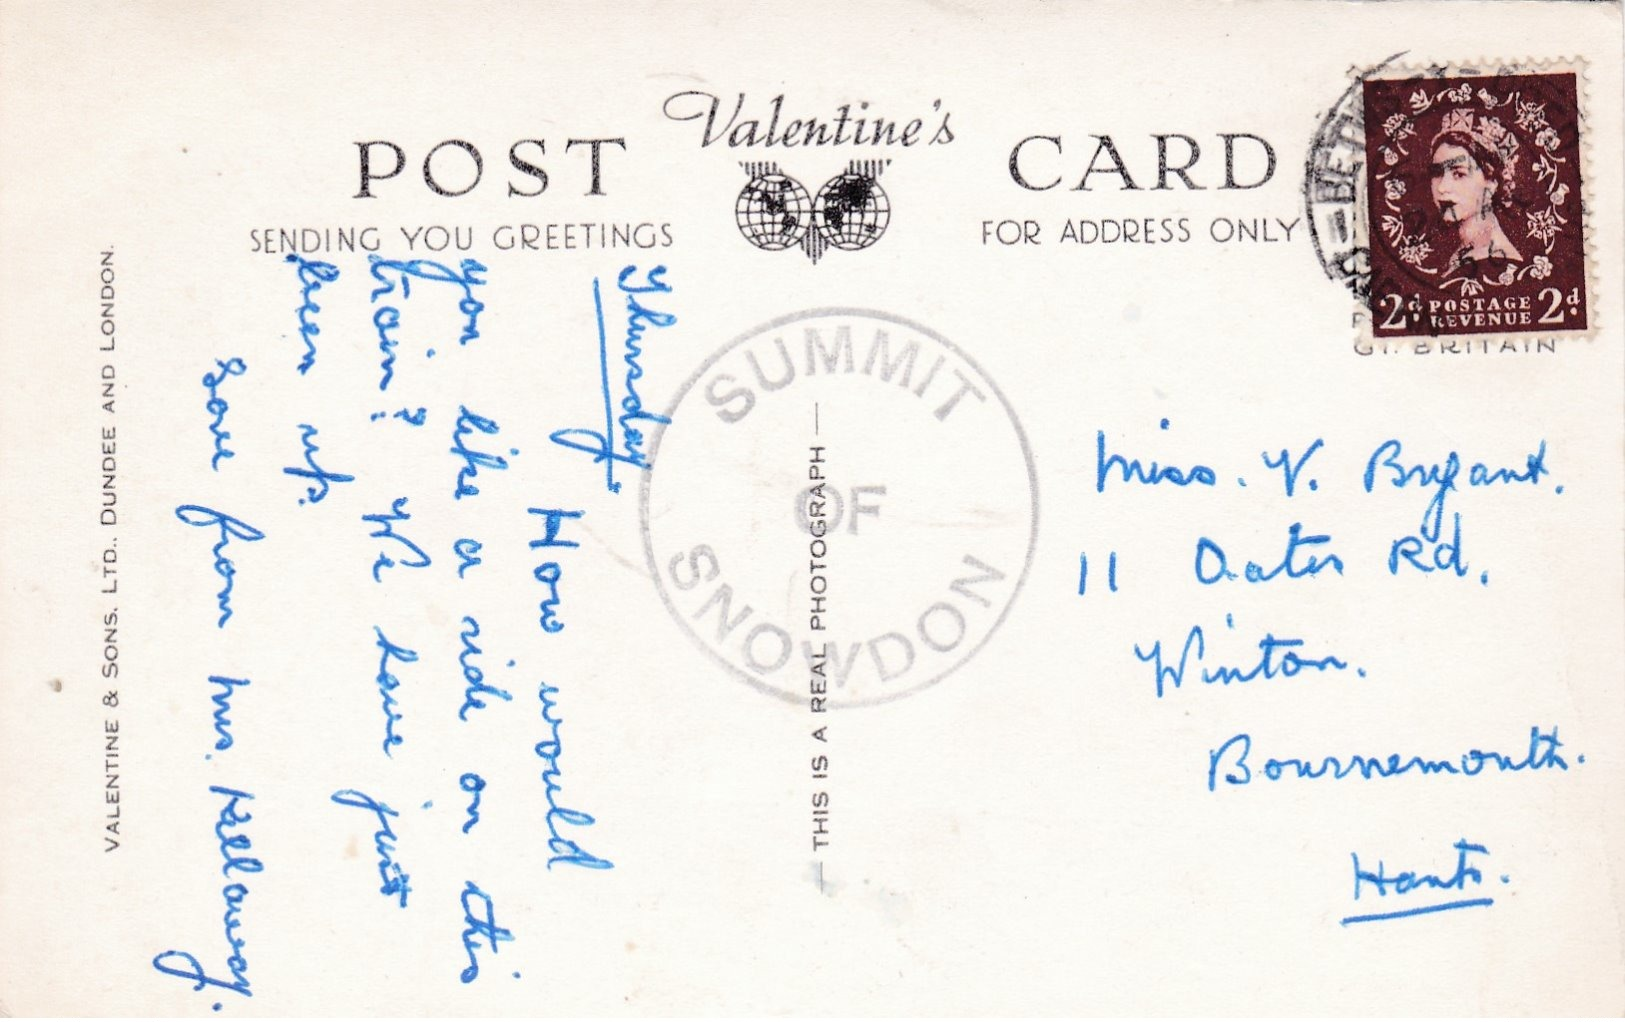 Valentine's
POST CARD
SENDING YOU GREETINGS
FOR ADDRESS ONLY
VALENTINE & SONS. LTD., DUNDEE AND LONDON.
Thursday.
How would
you like a ride on this
train? We have just
been up.
Love from Mrs. Kellaway.
SUMMIT
OF
SNOWDON
— THIS IS A REAL PHOTOGRAPH —
56
2d. POSTAGE 2d.
REVENUE
GT. BRITAIN
Miss. V. Bryant.
11 Oates Rd.
Winton.
Bournemouth.
Hants.